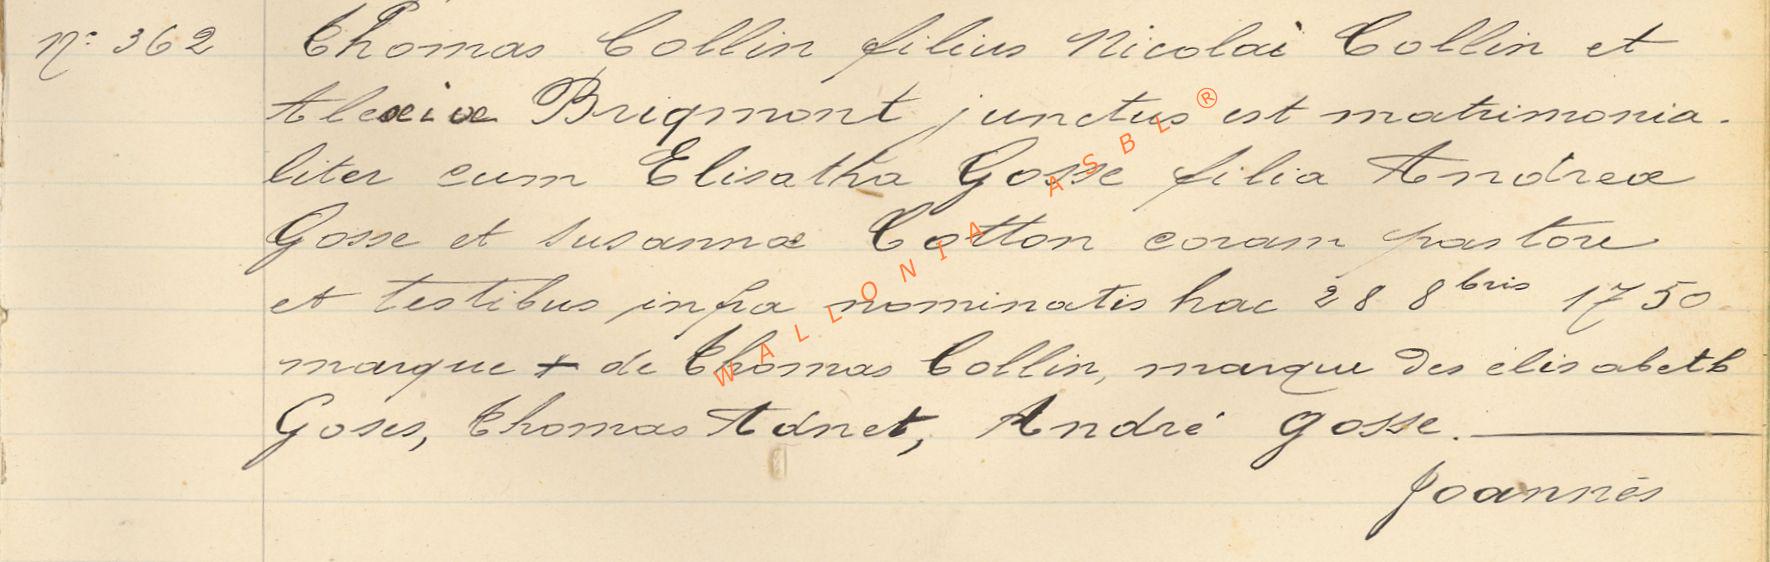 N° 362 Thomas Collin filius Nicolai Collin et
Alexiæ Brigmont junctus est matrimonia-
liter cum Elisatha Gosse filia Andreæ
Gosse et Susannæ Cotton coram pastore
et testibus infra nominatis hac 28 8bris 1750
marque + de Thomas Collin, marque des élisabeth
Goses, Thomas Adnet, André Gosse.
Joannès
WALLONIA ASBL ®